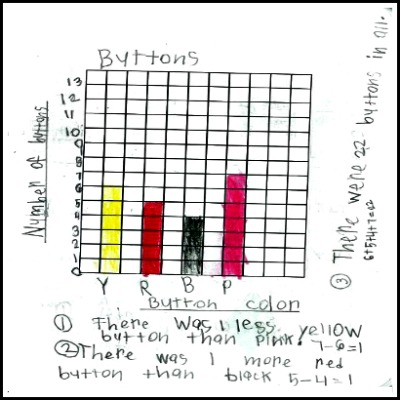 Buttons
Number of buttons
13
12
11
10
9
8
7
6
5
4
3
2
1
0
Y R B P
Button color
① There was 1 less yellow
button than pink. 7-6=1
② There was 1 more red
button than black 5-4=1
③ There were 22 buttons in all.
6+5+4+7=22